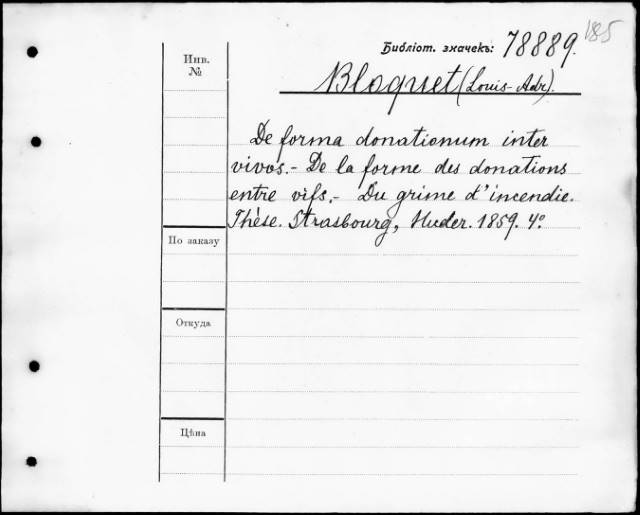 185
Библіот. значекъ: 78889.
Инв. №
Bloquet (Louis-Adr).
De forma donationum inter
vivos.- De la forme des donations
entre vifs.- Du grime d'incendie.
Thèse. Strasbourg, Huder. 1859. 4°.
По заказу
Откуда
Цѣна